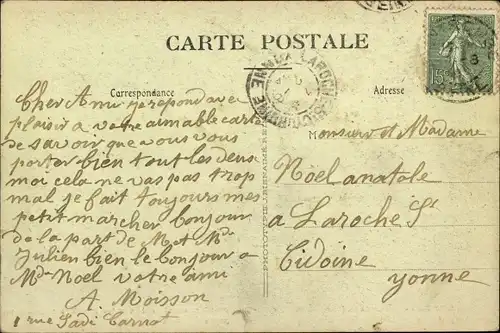 CARTE POSTALE
Correspondance
Adresse
15
Cher Ami je repond avec
plaisir a votre aimable carte
de savoir que vous vous
porter bien tout les deux
moi cela ne vas pas trop
mal je fait toujours mes
petit marcher bonjour
de la part de M et Me
Julien bien le bonjour a
Me Noel votre ami
A. Moisson
1 rue Sadi Carnot
Monsieur et Madame
Nöel anatole
a Laroche St
Cidoine
yonne